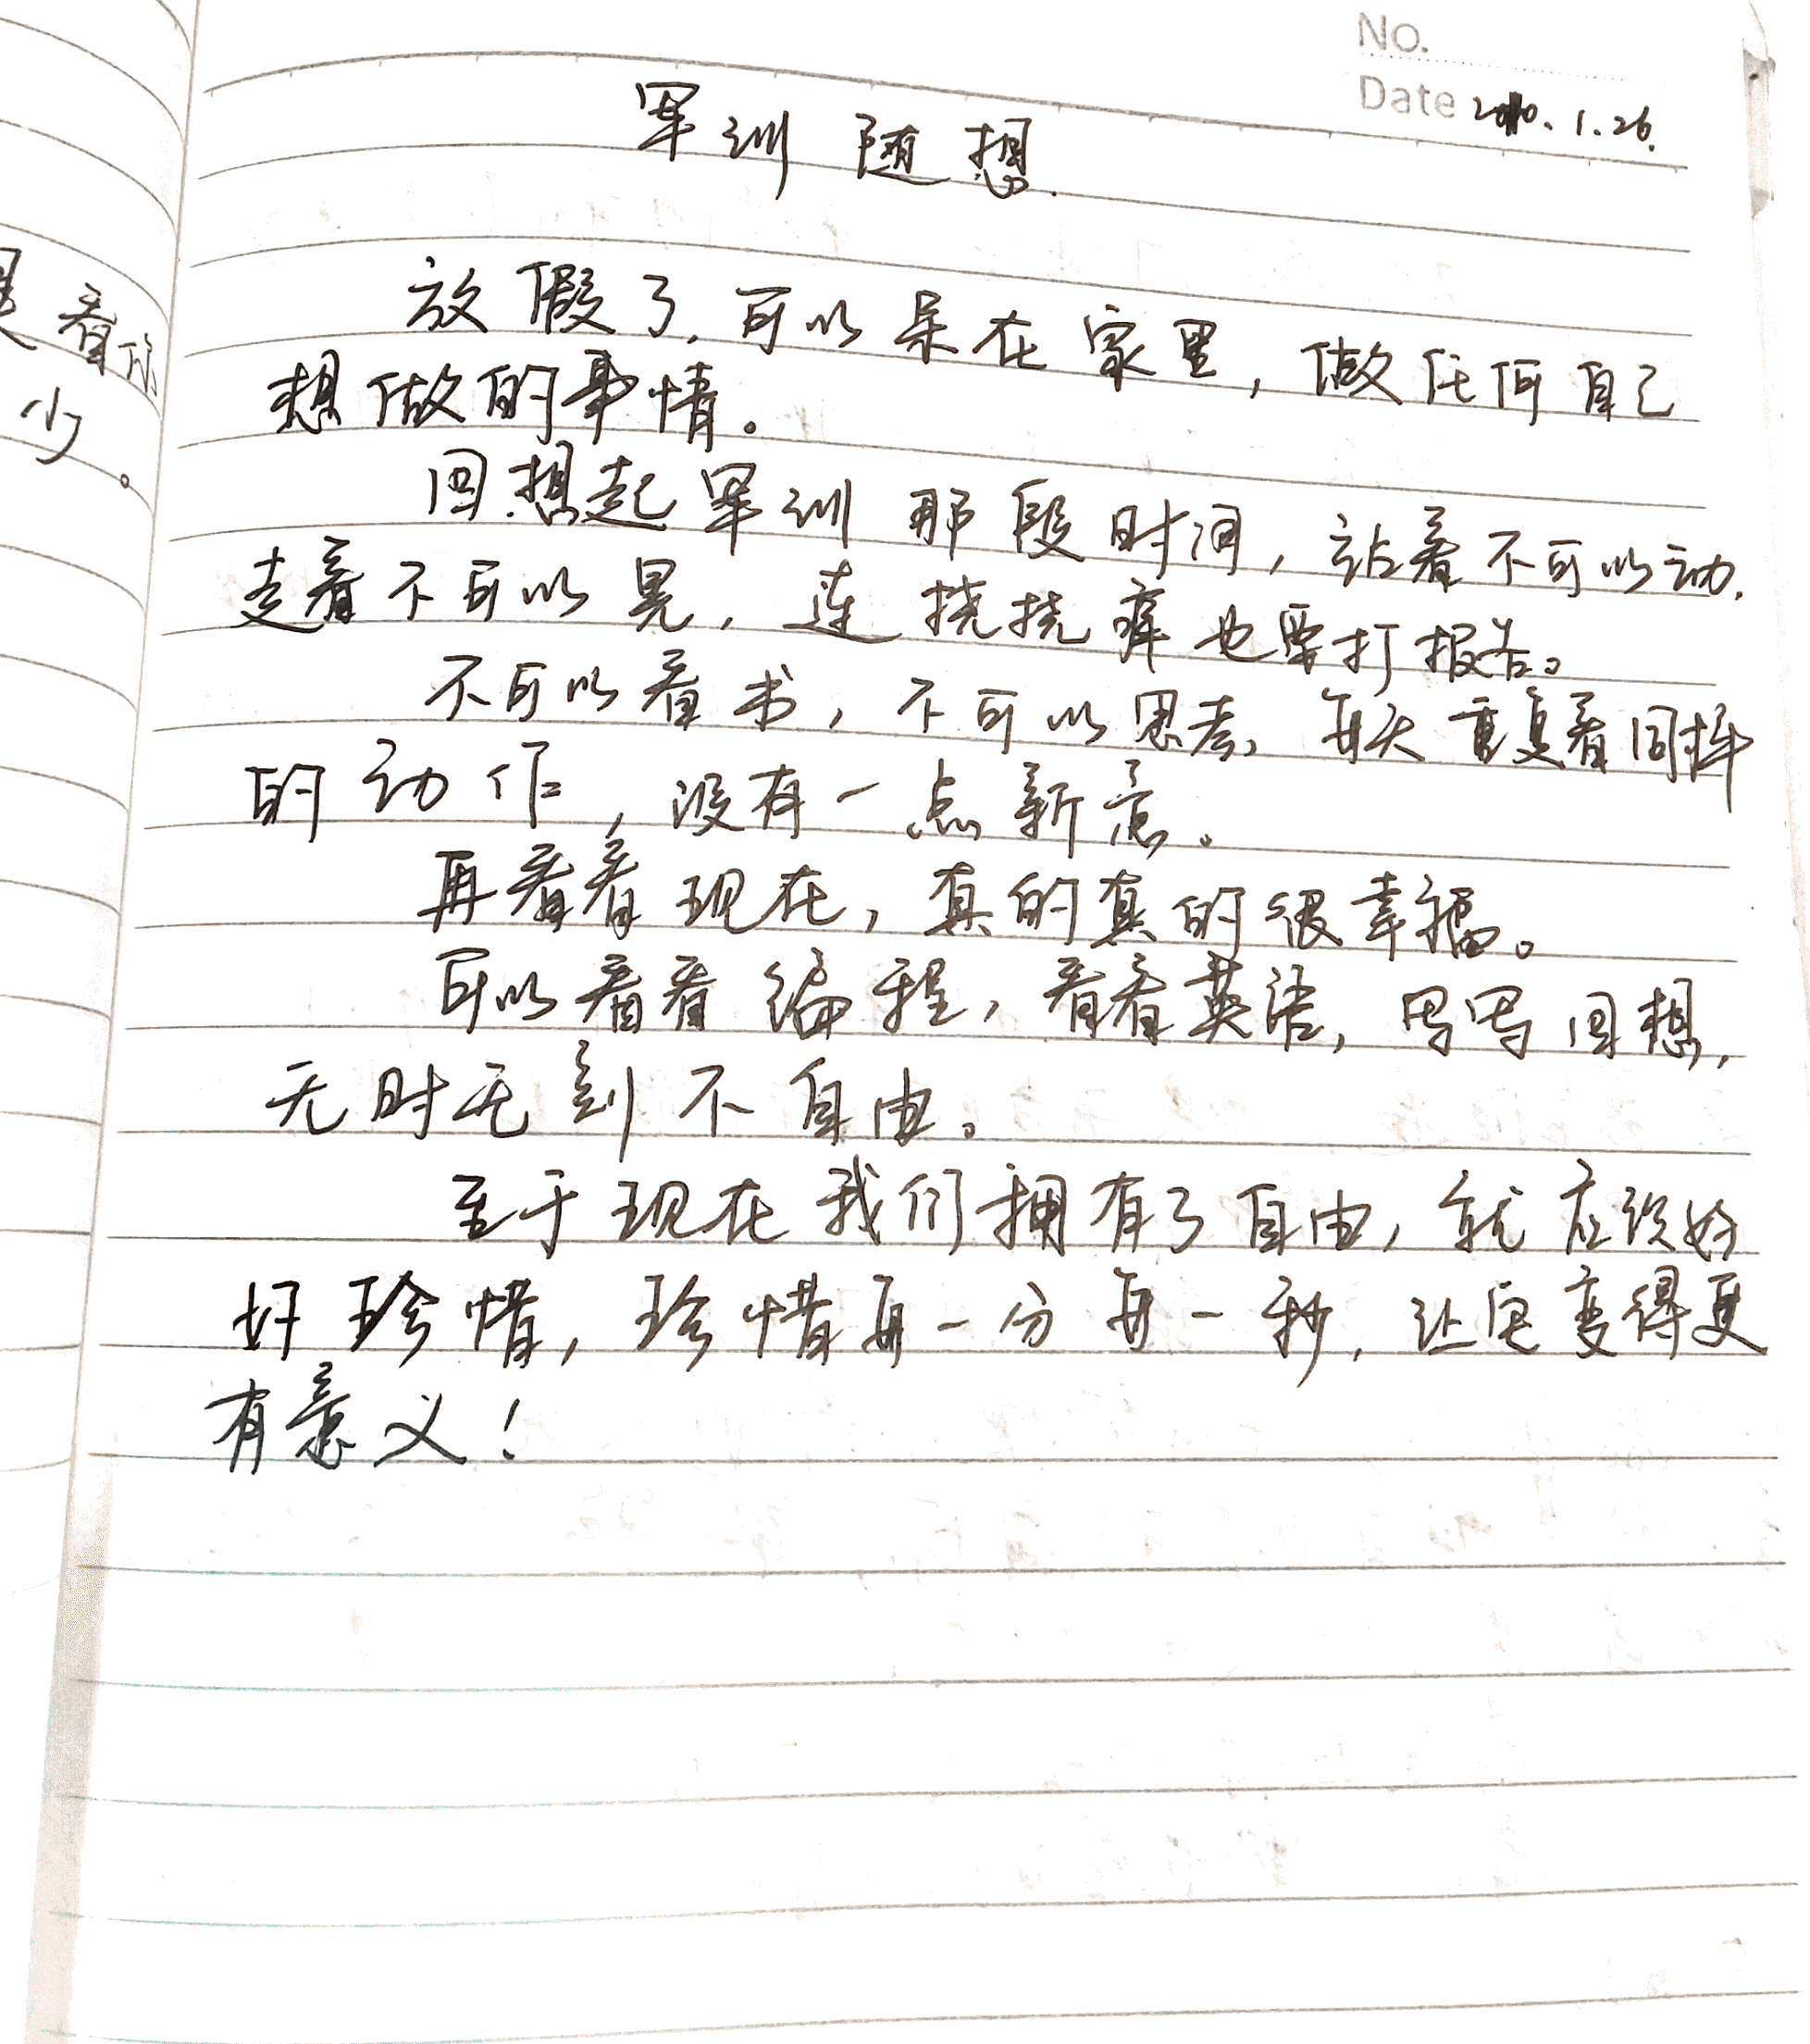 NO.
Date 2010.1.26.
军训随想.
放假了,可以呆在家里,做任何自己
想做的事情。
回想起军训那段时间,站着不可以动,
走着不可以晃,连挠挠痒也要打报告。
不可以看书,不可以思考,每天重复着同样
的动作,没有一点新意。
再看看现在,真的真的很幸福。
可以看看编程,看看英语,写写回想,
无时无刻不自由。
至于现在我们拥有了自由,就应该好
好珍惜,珍惜每一分每一秒,让它变得更
有意义!
看你
少。